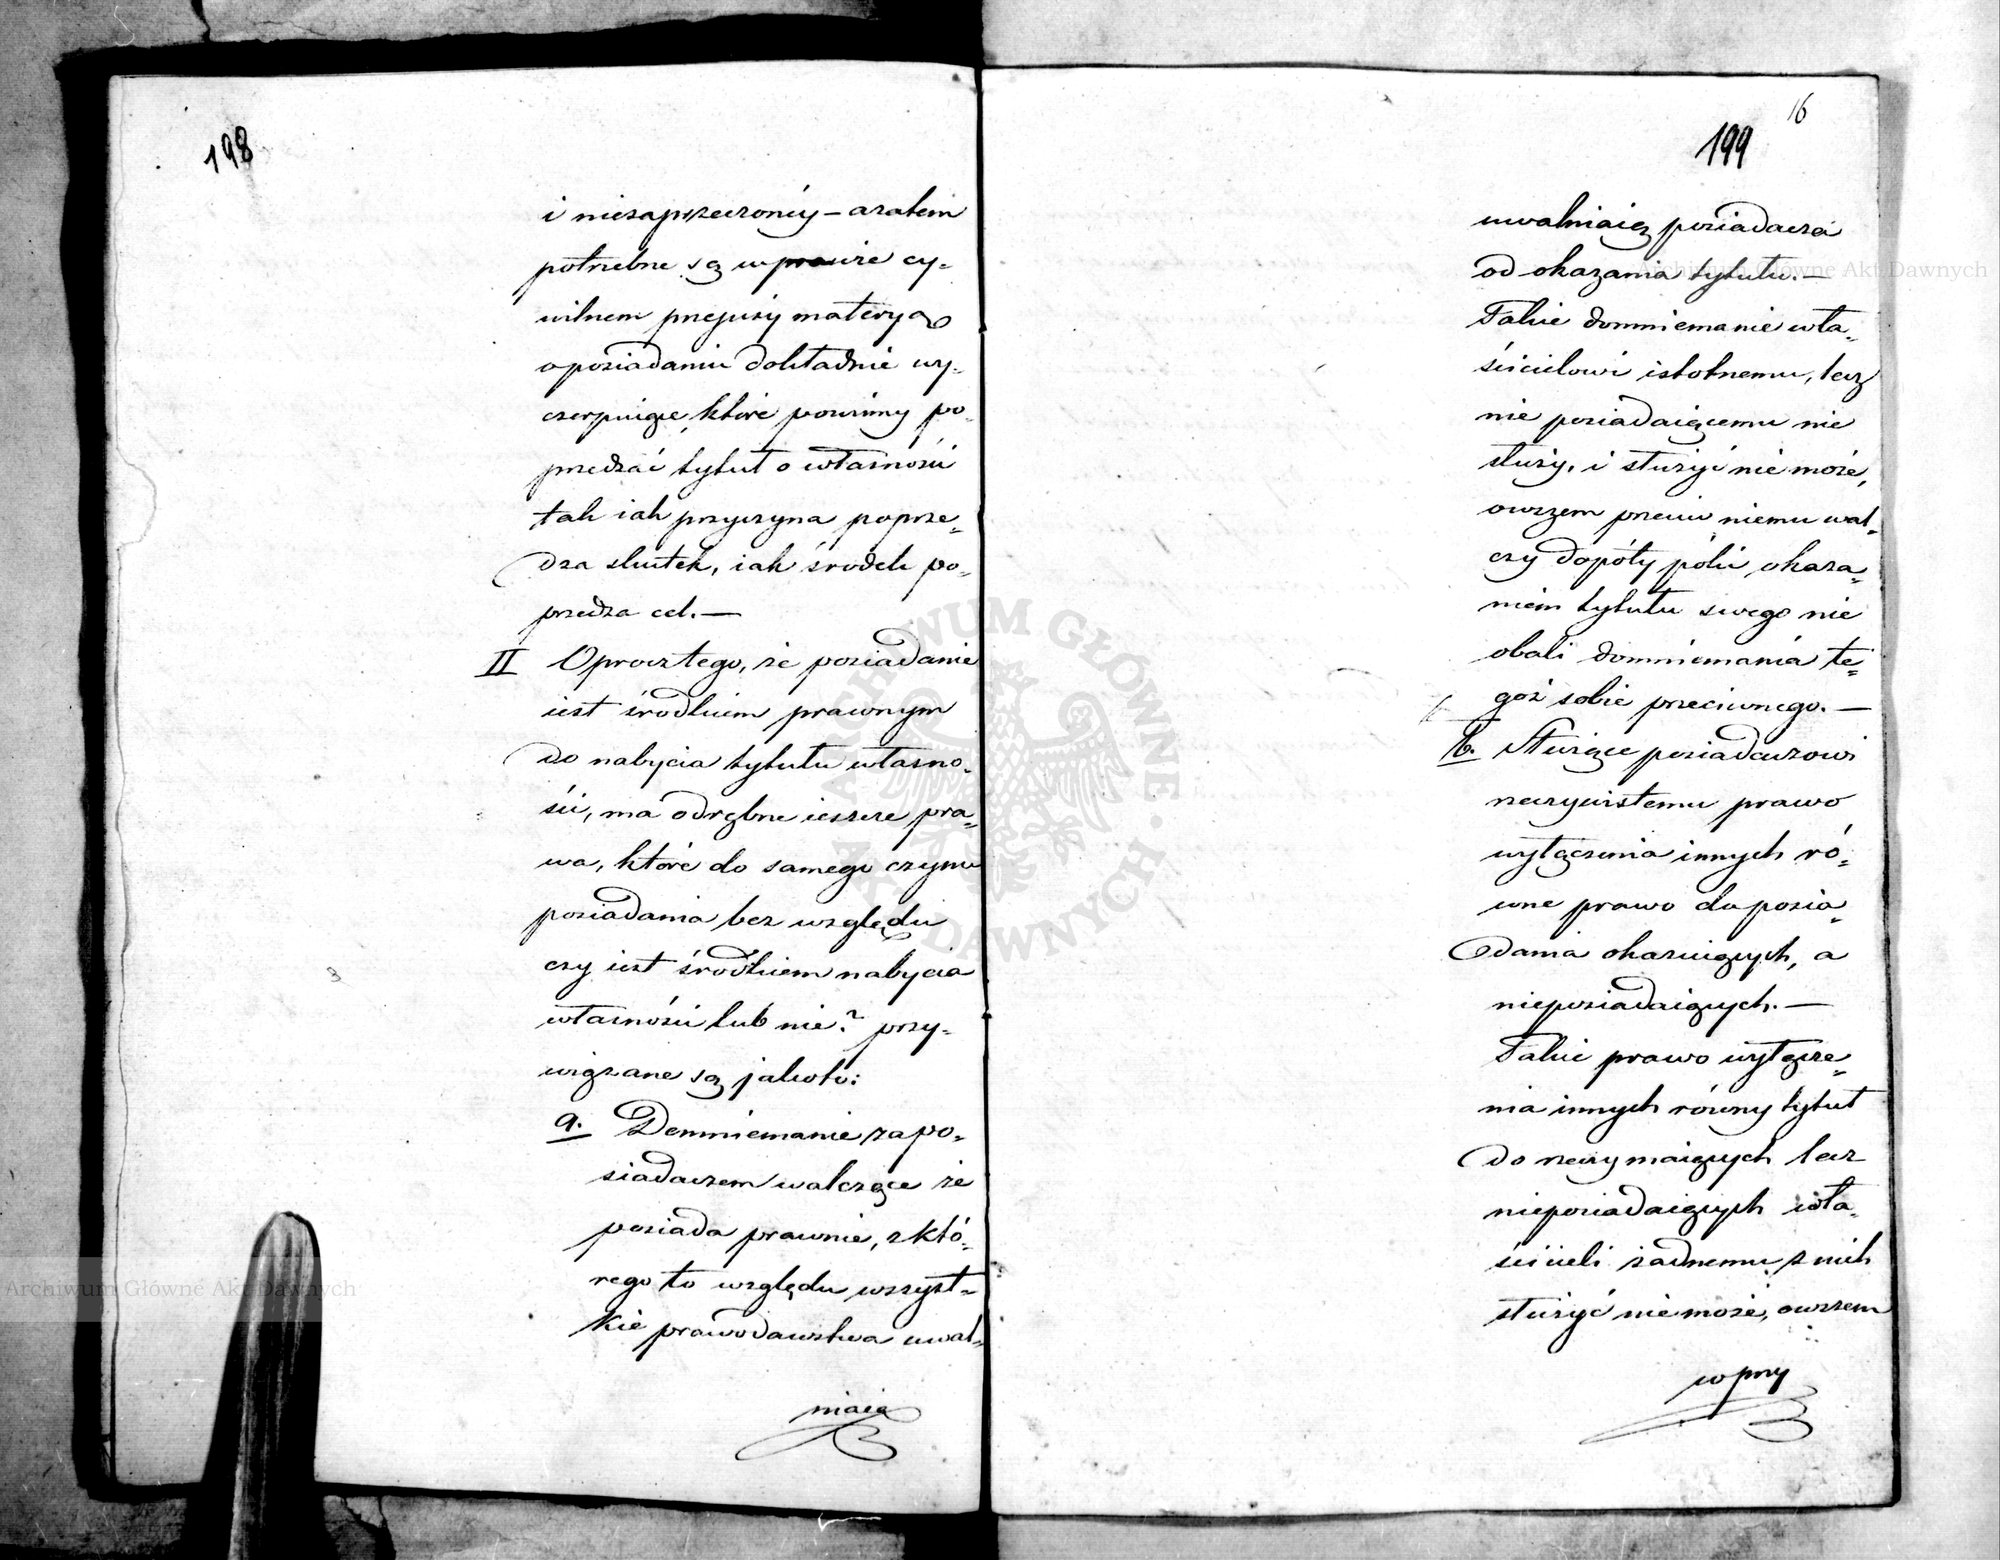 198
i niezaprzeczonéy – azatem
potrzebne są w prawie cy-
wilnem przepisy materyą
o posiadaniu dokładnie wy-
czerpuiące, które powinny po-
przedzać tytuł o własności
tak iak przyczyna poprze-
dza skutek, iak środek po-
przedza cel. —
II Oprocz tego, że posiadanie
iest środkiem prawnym
do nabycia tytułu własno-
ści, ma odrębne ieszcze pra-
wa, które do samego czynu
posiadania bez względu
czy iest środkiem nabycia
własności lub nie? przy-
wiązane są jakoto:
a. Domniemanie za po-
siadaczem walczące że
posiada prawnie, z któ-
rego to względu wszyst-
kie prawodawstwa uwal-
niaią
16
199
uwalniaią posiadacza
od okazania tytułu. —
Takie domniemanie wła-
ścicielowi istotnemu, lecz
nie posiadaiącemu nie
służy, i służyć nie może,
owszem przeciw niemu wal-
czy dopóty póki okaza-
niem tytułu swego nie
obali domniemania te-
goż sobie przeciwnego. —
b. Służące posiadaczowi
rzeczywistemu prawo
wyłączenia innych ró-
wne prawo do posia-
dania okazuiących, a
nieposiadaiących. —
Takie prawo wyłącze-
nia innych równy tytuł
do rzeczy maiących lecz
nieposiadaiących wła-
ścicieli żadnemu z nich
służyć nie może, owszem
w przy
Archiwum Główne Akt Dawnych
Archiwum Główne Akt Dawnych
ARCHIWUM GŁÓWNE AKT DAWNYCH